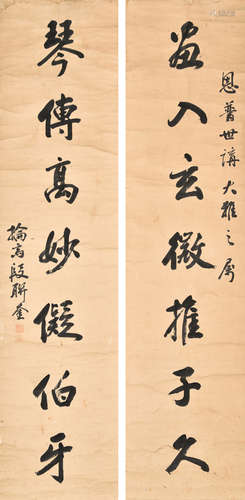 恩普世講大雅之屬
畫入玄微推子久
琴傳高妙儗伯牙
掄高段聯奎